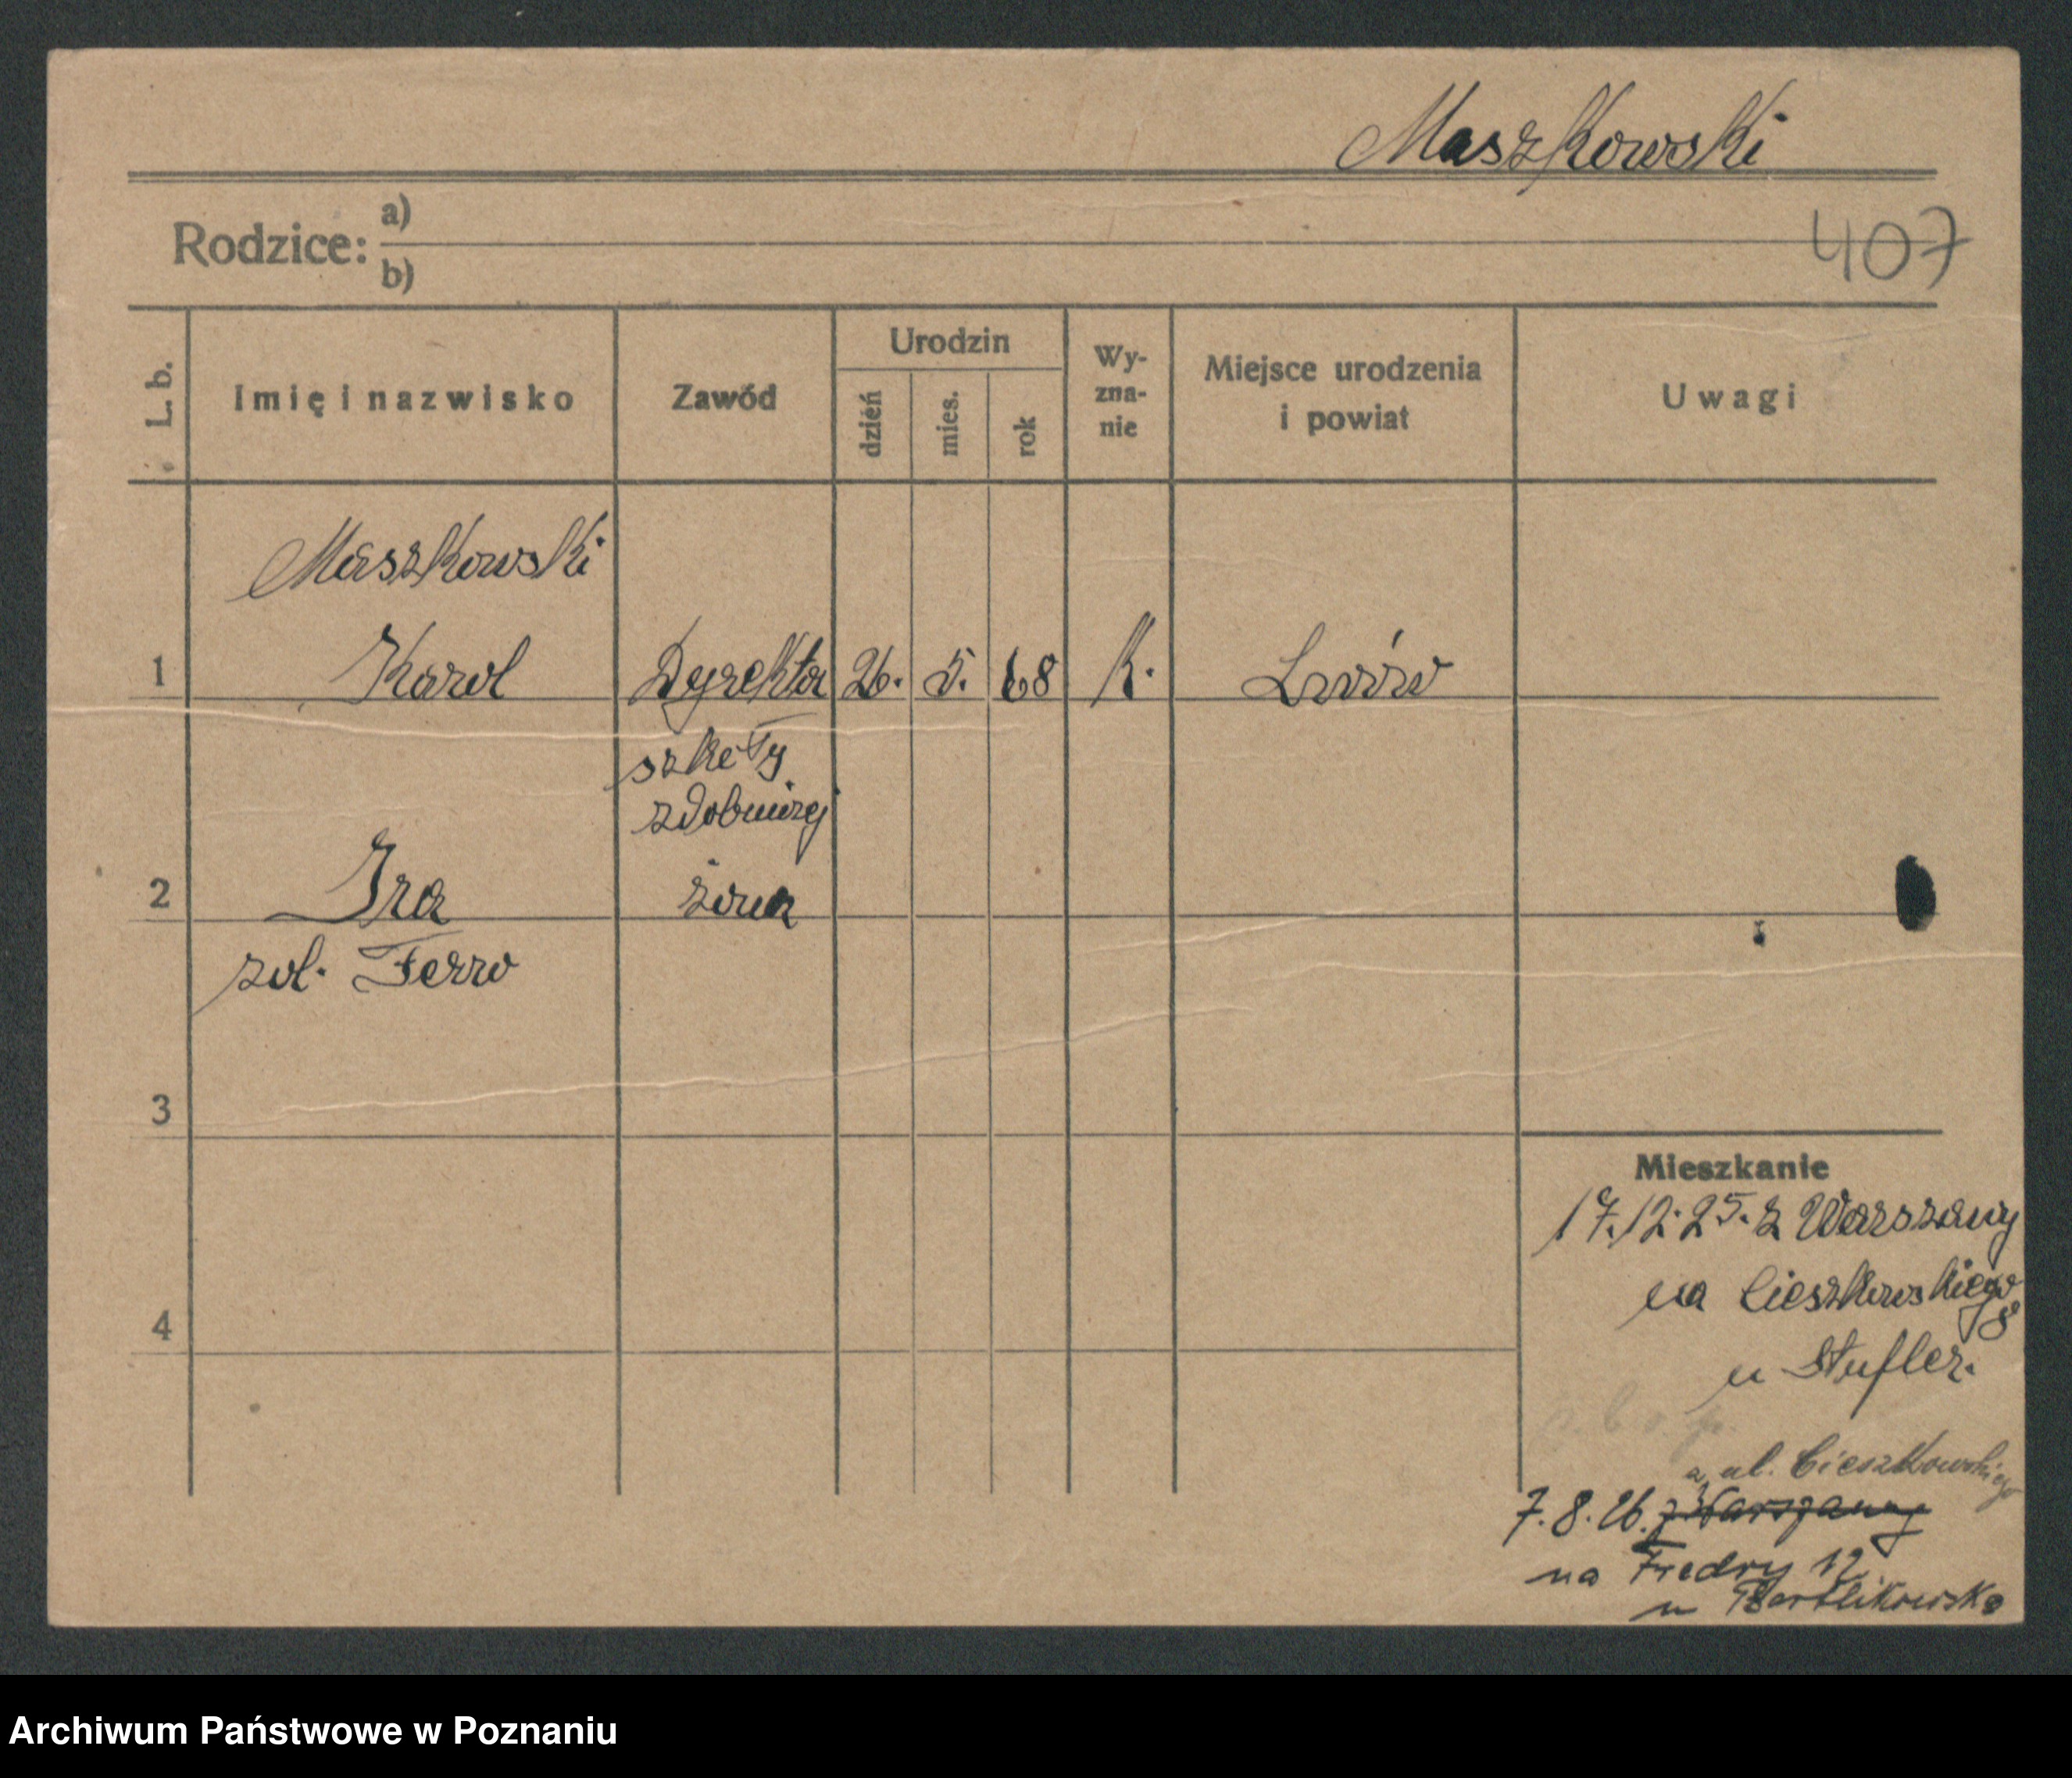 Maszkowski
Rodzice: a)
b)
407
L. b.
Imię i nazwisko
Zawód
Urodzin
dzień
mies.
rok
Wy-
zna-
nie
Miejsce urodzenia
i powiat
Uwagi
Maszkowski
1 Karol Dyrektor 26. 5. 68 K. Lwów
szkoły
zdobniczej
2 Ira żona
zol. Ferro
3
4
Mieszkanie
17.12.25. z Warszawy
na Cieszkowskiego
8
u Stufler.
z ul. Cieszkowskiego
7.8.26. z Warszawy
na Fredry 12
u Bartlikowska
Archiwum Państwowe w Poznaniu